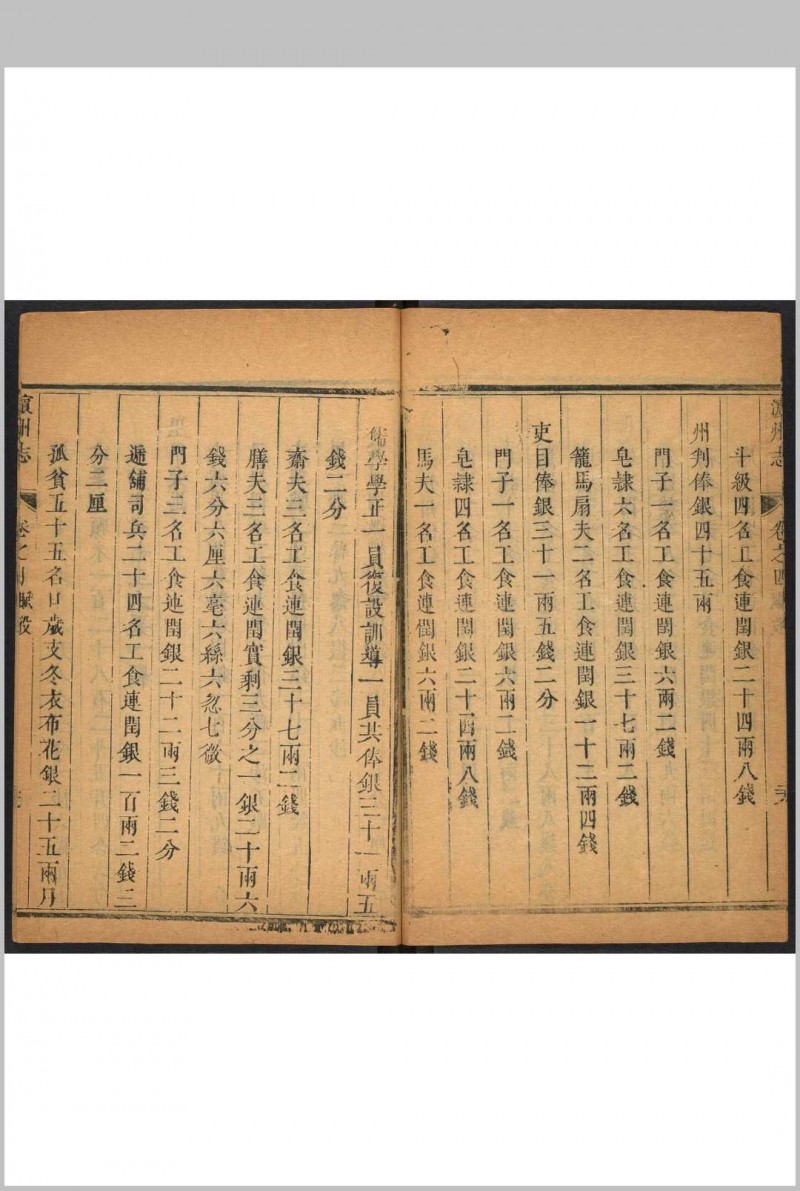 濵州志
卷之四賦役
斗級四名工食連閏銀二十四兩八錢
州判俸銀四十五兩
門子一名工食連閏銀六兩二錢
皂隷六名工食連閏銀三十七兩二錢
籠馬扇夫二名工食連閏銀一十二兩四錢
吏目俸銀三十一兩五錢二分
門子一名工食連閏銀六兩二錢
皂隷四名工食連閏銀二十四兩八錢
馬夫一名工食連閏銀六兩二錢
儒學學正一員復設訓導一員共俸銀三十一兩五
錢二分
齋夫三名工食連閏銀三十七兩二錢
膳夫三名工食連閏實剩三分之一銀二十兩六
錢六分六厘六毫六絲六忽七微
門子三名工食連閏銀二十二兩三錢二分
逓舖司兵二十四名工食連閏銀一百兩二錢三
分二厘
孤貧五十五名口歲支冬衣布花銀二十五兩月
濵州志
卷之四賦役